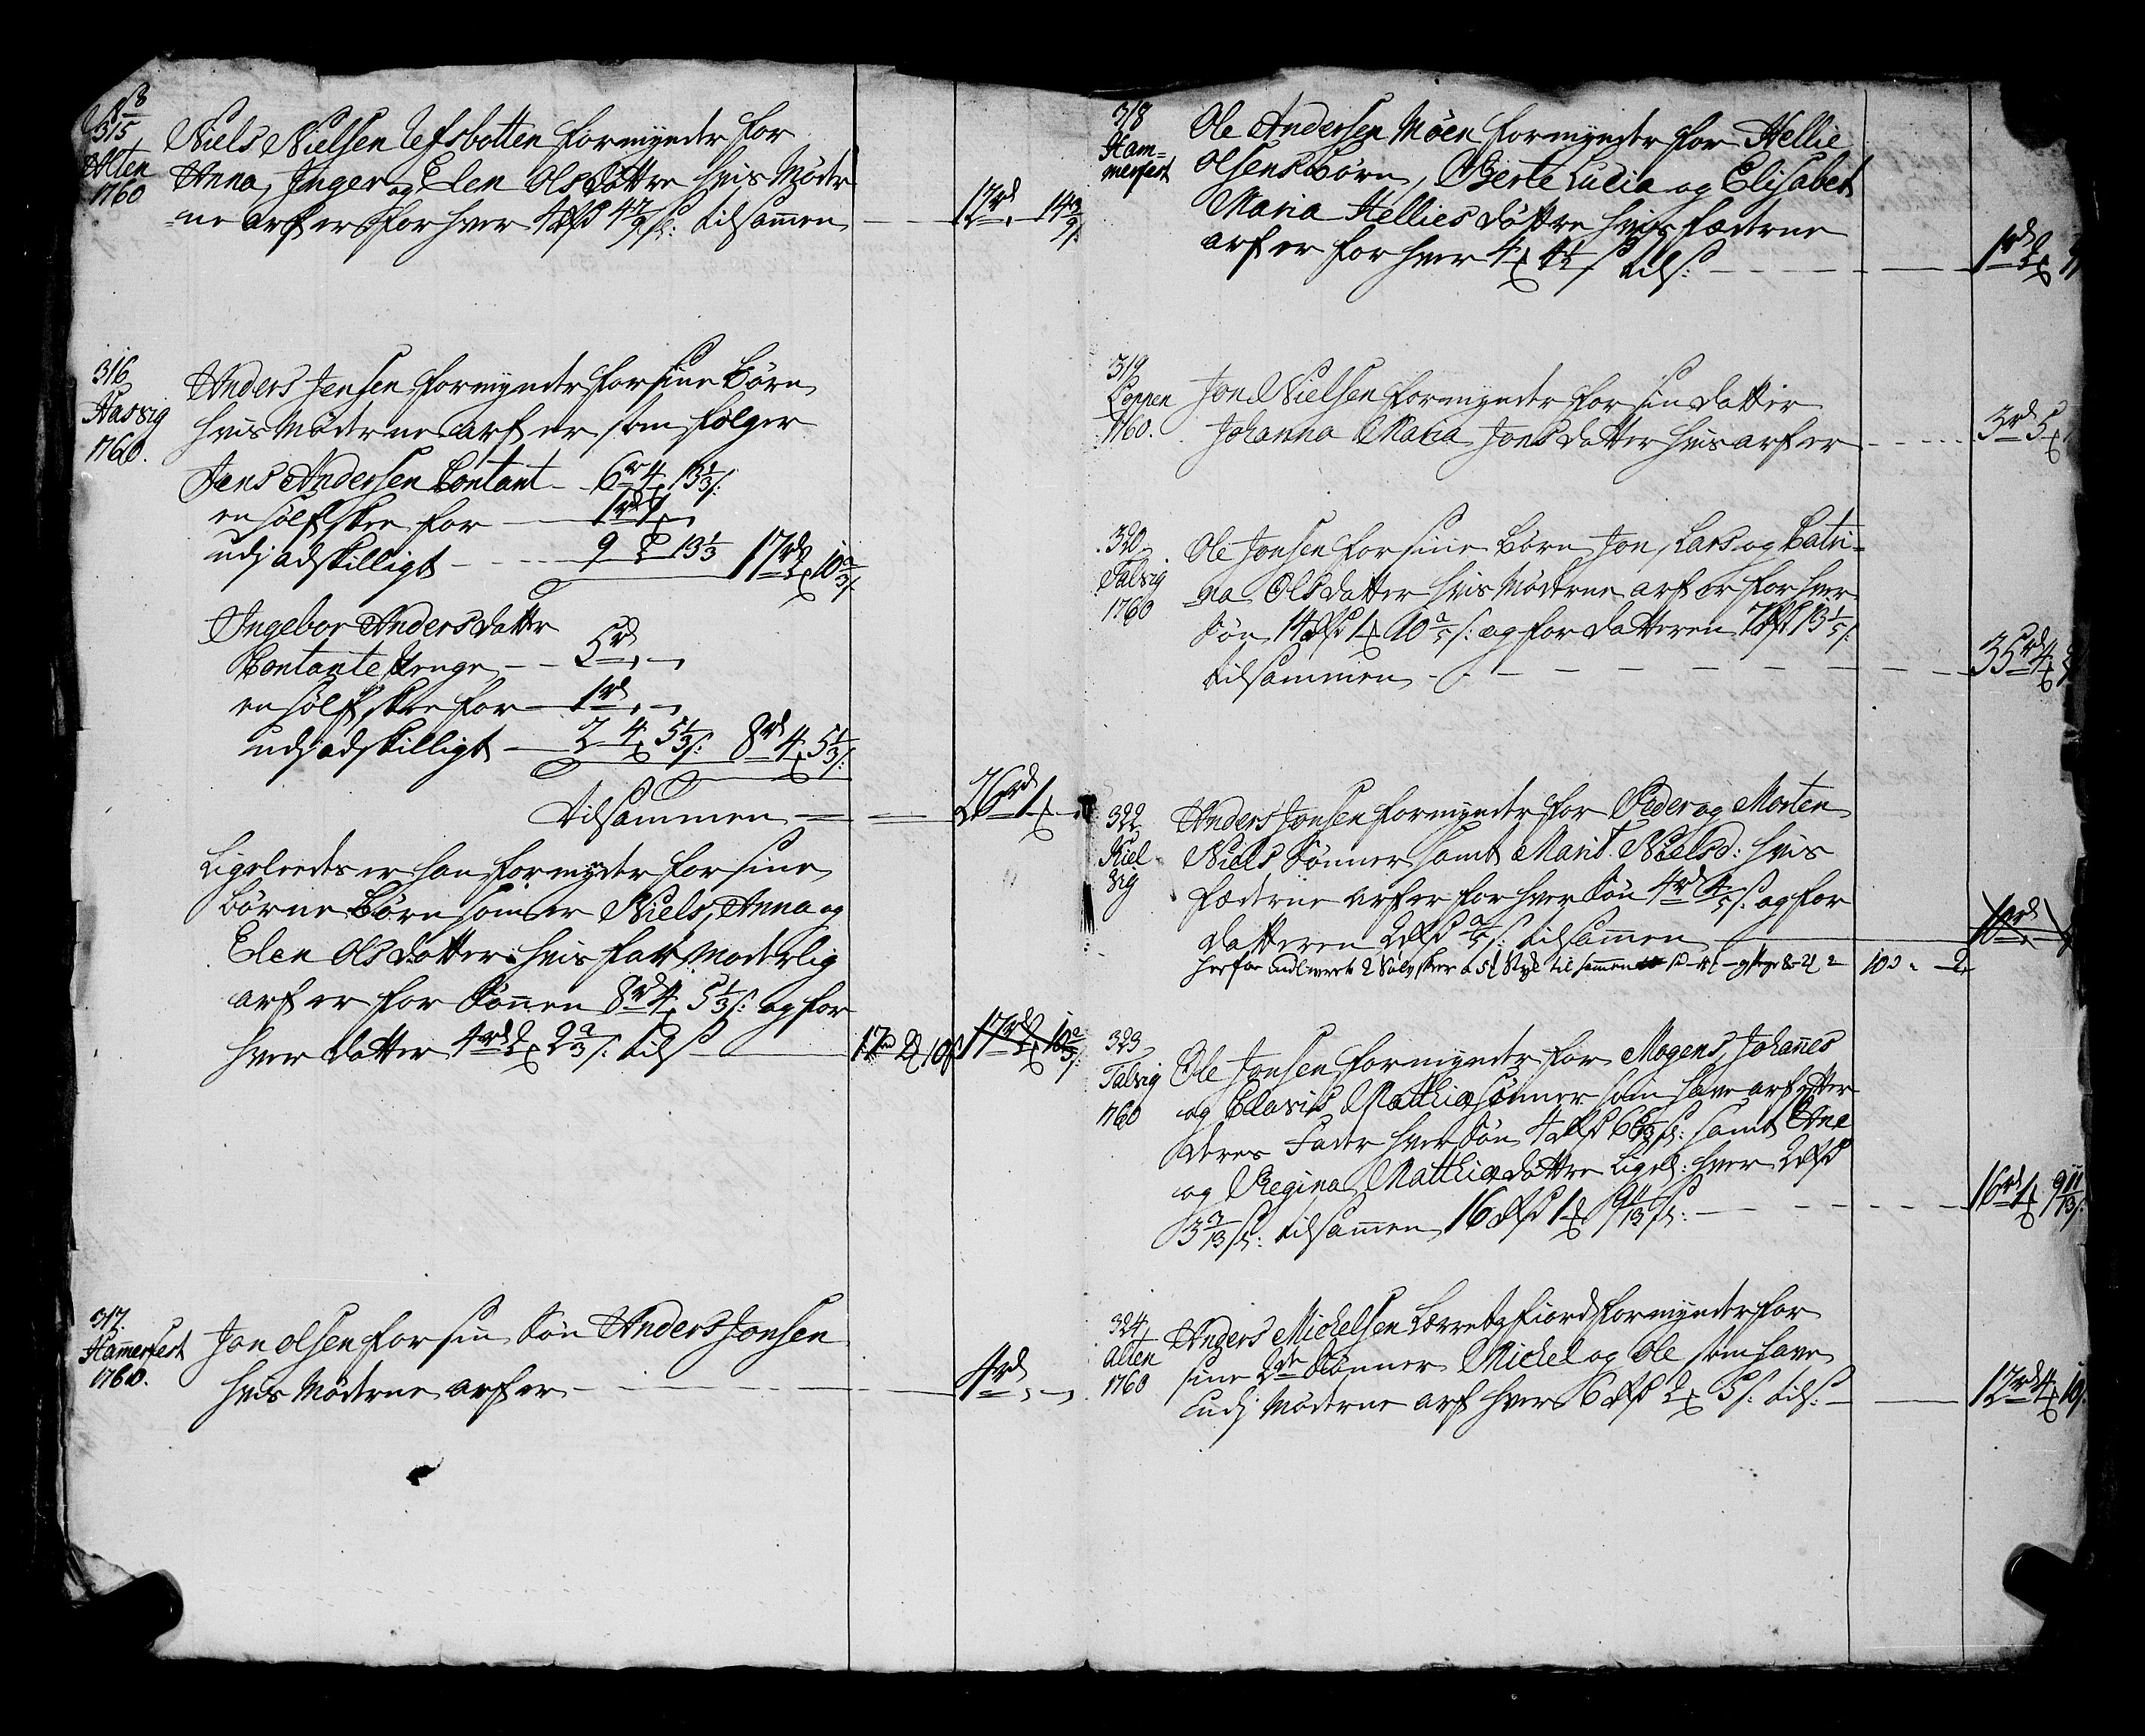 315
Alten
1760
Niels Nielsen Refsbotten formynder for
Anna, Inger og Elen Olsdøttre hvis Mødr
ne arf er for hver 4 rd tilsamen
12 rd
316
Hasvig
1760.
Anders Jensen formynder for sine Børn
hvis Mødrene arf er som følger
Jens Andersen Contant 6 r 4 13 1/3 s:
en sølf skee for 1 rd
udj adskilligt 9 13 1/3 17 rd 2 10 2/3 s.
Ingebor Andersdatter
Contante Penge 5 rd
en sølf skee for 1 rd
udj adskilligt 2 4 5 1/3 s: 8 rd 4 5 1/3 s:
Tilsammen 26 rd 1
Ligeleedes er han formynder for sine
Børne Børn som er Niels, Anna og
Elen Olsdatter hvis Moderlig
arf er for Sønnen 8 rd 4 5 1/3 s: og for
hver datter 4 rd 2 2 2/3 s. tils 17 2 10 17 rd 2 10 2/3 s:
317.
Hamerfest
1760.
Jon Olsen for sin Søn Anders Jonsen
hvis Mødrene arf er 4 rd
318
Ham=
merfest
Ole Andersen Møen formynder for Hellie
Olsens børn, Berte Lucia og Elisabet
Maria Hellies døttre hvis fædrene
arf er for hver 4 tils: 1 rd 2
319
Loppen
1760.
Jon Nielsen formynder for sin datter
Johanna Maria Jonsdatter hvis arf er 3 rd 5
320
Talvig
1760
Ole Jonsen for sine Børn Jon, Lars og Catri=
=na Olsdatter hvis Mødrene arf er for hver
Søn 14 rd 1 10 2/5 s: og for datteren 7 rd 13 1/5 s:
tilsammen 35 rd 4
322
Kiel
vig
Anders Jonsen formynder for Peder og Morten
Niels Sønner samt Marit Nielsd: hvis
fædrene arf er for hver Søn 4 rd 4/5 s: og for
datteren 2 rd 2/5 s: tilsammen 10 rd
herfor 2 Sølv skeer a 5 Styk til sammen
323
Talvig
1760
Ole Jonsen formynder for Mogens, Johannes
og Clavis Mathiæsønner som have arf efter
deres Fader hver Søn 4 rd samt Ane
og Regina Matthiædøttre Ligel: hver 2 rd
3 3/13 s: tilsamen 16 rd 1 9 11/13 s: 16 rd 1 9 11/13 s:
324
Alten
1760
Anders Michelsen formynder for
sine 2de Sønner Michel og Ole som have
udj Mødrene arf hver 6 rd 2 5 s: tils: 12 rd 4 10 s.